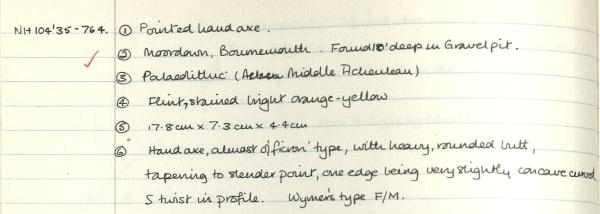 NH 104'35-764. ① Pointed hand axe.
② Moordown, Bournemouth. Found 10' deep in Gravel pit.
③ Palaeolithic (Middle Acheulean)
④ Flint, stained bright orange-yellow
⑤ 17.8cm x 7.3cm x 4.4cm
⑥ Hand axe, almost of 'ficron' type, with heavy, rounded butt,
tapering to slender point, one edge being very slightly concave curved
S twist in profile. Wymer's type F/M.